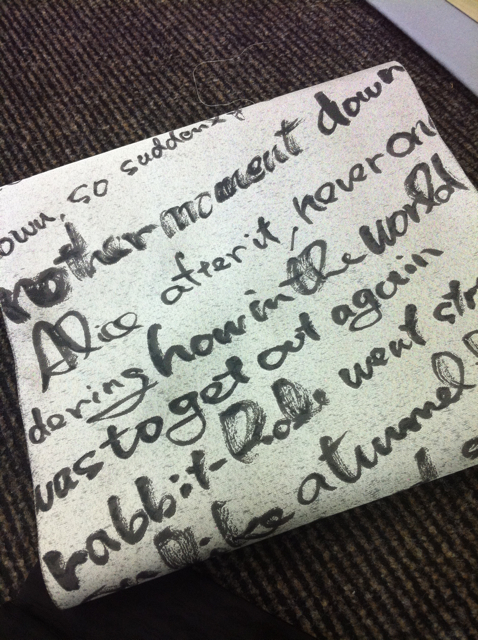 own, so suddenly
nother moment down
Alice after it, never on
dering how in the world
was to get out again
rabbit-hole went str
like a tunnel